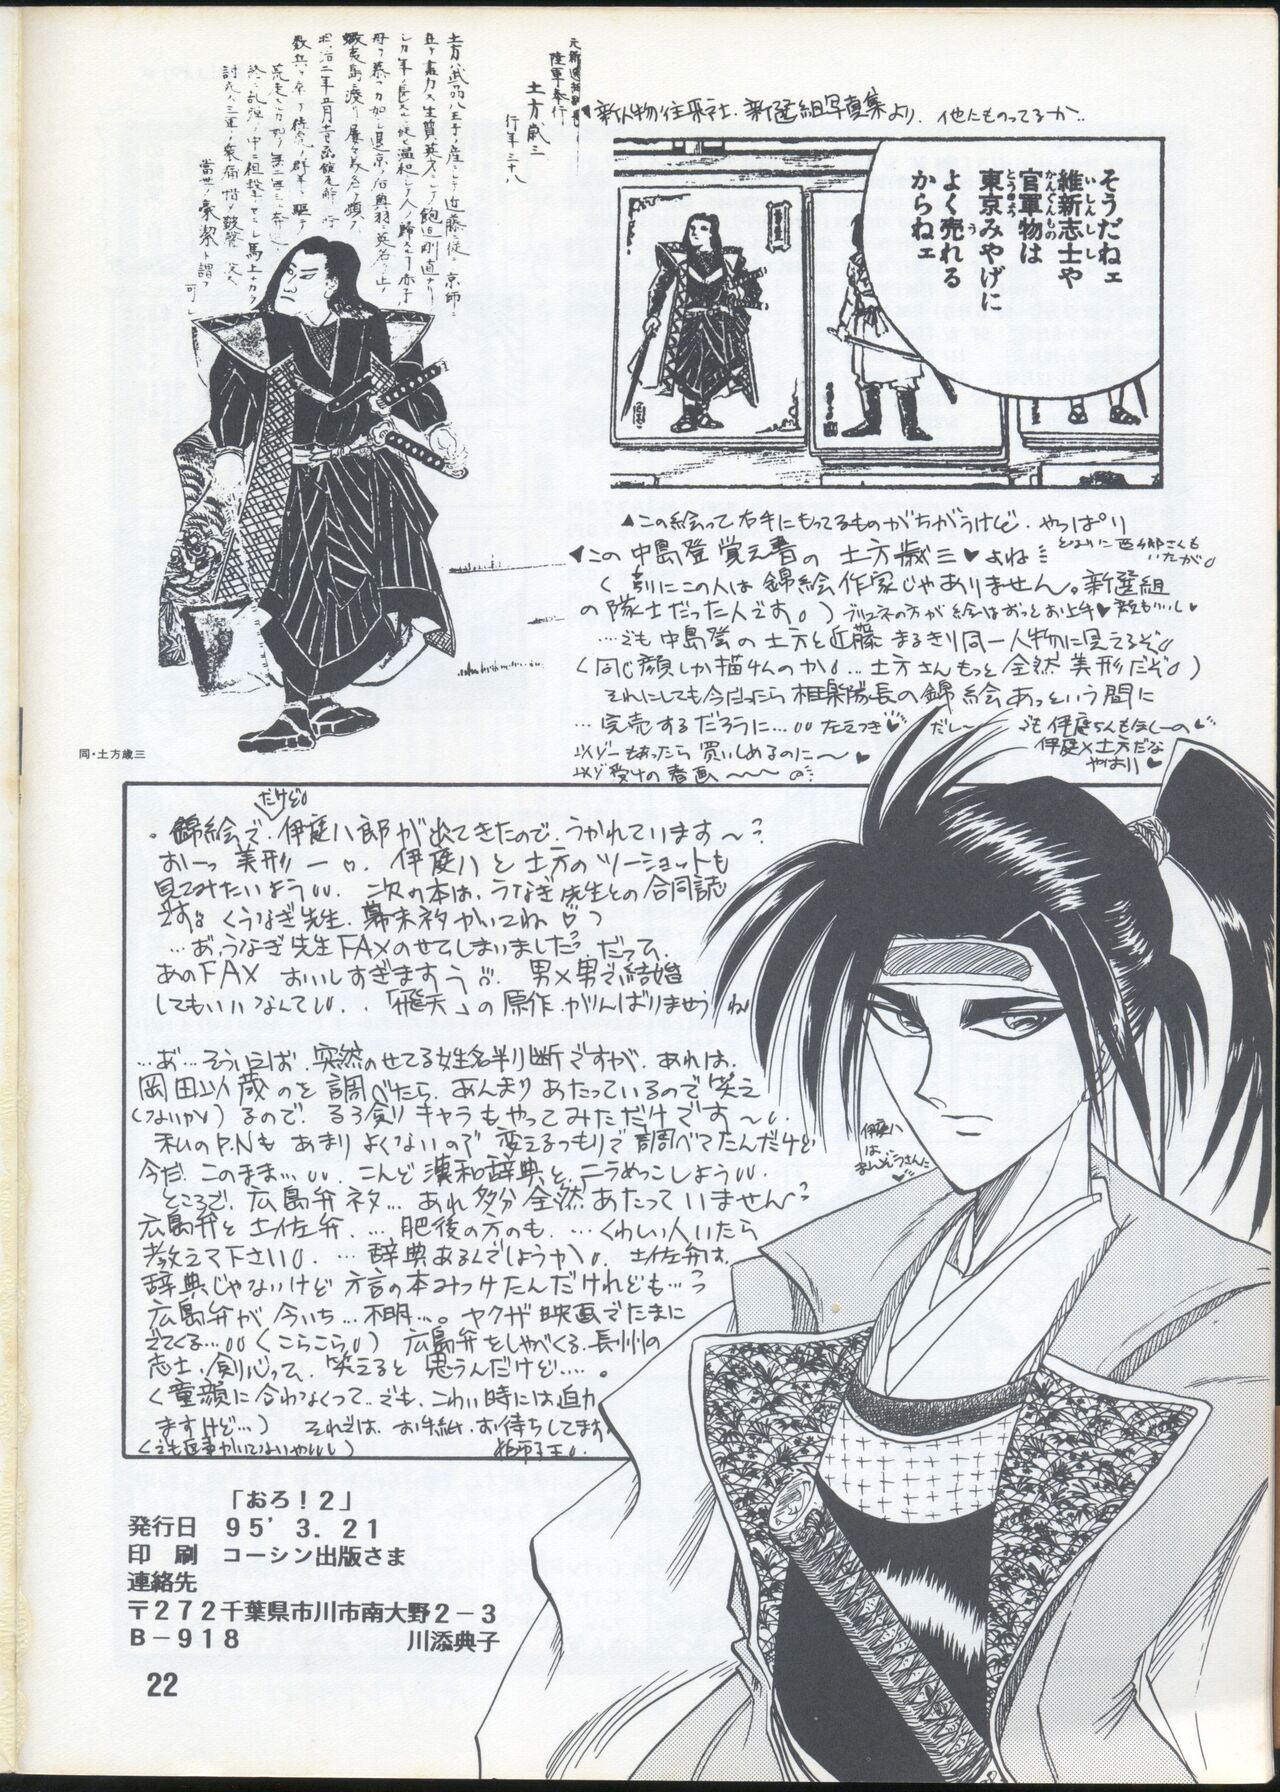 元新選組副長
陸軍奉行
土方歳三
行年三十八
土方ハ武品八王子ノ産ニシテ近藤ニ従ヒ京師ニ
在テ盡力ス生質英才ニシテ飽迄剛直ナリ
シカ年ノ長スルニ従ヒ温和ニシテ人ノ帰スル事赤子ノ
母ヲ慕フカ如シ退京ノ后奥羽ニ英名ヲ止メ
蝦夷島渡リ屡々美名ヲ顕ス
明治二年五月十一日函館瓦解ノ時
数兵ヲ卒ヒ
荒
終ニ乱弾ノ中ニ狙撃セラレ馬上ナカラ
討死ス三軍ノ衆痛惜ノ鼓聲
當世ノ豪潔ト謂フ
可
◀新人物往来社・新選組写真集より、他にものってるか‥
そうだねェ
維新志士や
官軍物は
東京みやげに
よく売れる
からねェ
いしんしし
かんぐんもの
とうきょう
う
▲この絵って右手にもってるものがちがうけど、やっぱり
となりに西郷さんも
いたが
◀この中島登覚え書の土方歳三♥よね
(別にこの人は錦絵作家じゃありません。新選組
の隊士だった人です。)ブリュネの方が絵はずっとお上手♥顔もいいし
…でも中島登の土方と近藤まるきり同一人物に見えるぞ
(同じ顔しか描けんのか。…土方さんもっと全然美形だぞ)
それにしても今だったら相楽隊長の錦絵あっという間に
…完売するだろうに…左之つき♥だし〜 でも伊庭ちんもほしーの♥
伊庭×土方だな
やはり♥
もあったら買いしめるのに〜♥
受けの春画〜〜の
同・土方歳三
だけど
。錦絵で、伊庭八郎が出てきたので、うかれています〜?
おーっ美形ー♡。伊庭八と土方のツーショットも
見てみたいよう。次の本は、うなぎ先生との合同誌
です。くうなぎ先生、幕末ネタかいてね♡>
…お、うなぎ先生FAXのせてしまいました?だって、
あのFAXおいしすぎますう。男×男で結婚
してもいいなんて‥「飛天」の原作、がんばりませうね
…あ…そういえば、突然のせてる姓名判断ですが、あれは、
岡田以蔵のを調べたら、あんまりあたっているので笑え
(ないか)るので、るろ剣キャラもやってみただけです〜。
私のP.Nもあまりよくないので変えるつもりで調べてたんだけど
今だ、このまま…。こんど漢和辞典と、ニラめっこしよう。
ところで、広島弁ネタ…あれ多分全然あたっていません?
広島弁と土佐弁、…肥後の方のも、…くわしい人いたら
教えて下さい。…辞典あるんでしょうか。土佐弁は、
辞典じゃないけど方言の本みつけたんだけれども…?
広島弁が今いち…不明…。ヤクザ映画でたまに
でてくる…(こらこら)広島弁をしゃべくる、長州の
志士、剣心って、笑えると思うんだけど…。
(童顔に合わなくって‥でも、こわい時には迫力
ますけど…)それでは、お手紙、お待ちしてます
伊庭八
は
まんぞうさんに
「おろ!2」
発行日 95' 3. 21
印 刷 コーシン出版さま
連絡先
〒272千葉県市川市南大野2-3
B-918 川添典子
22